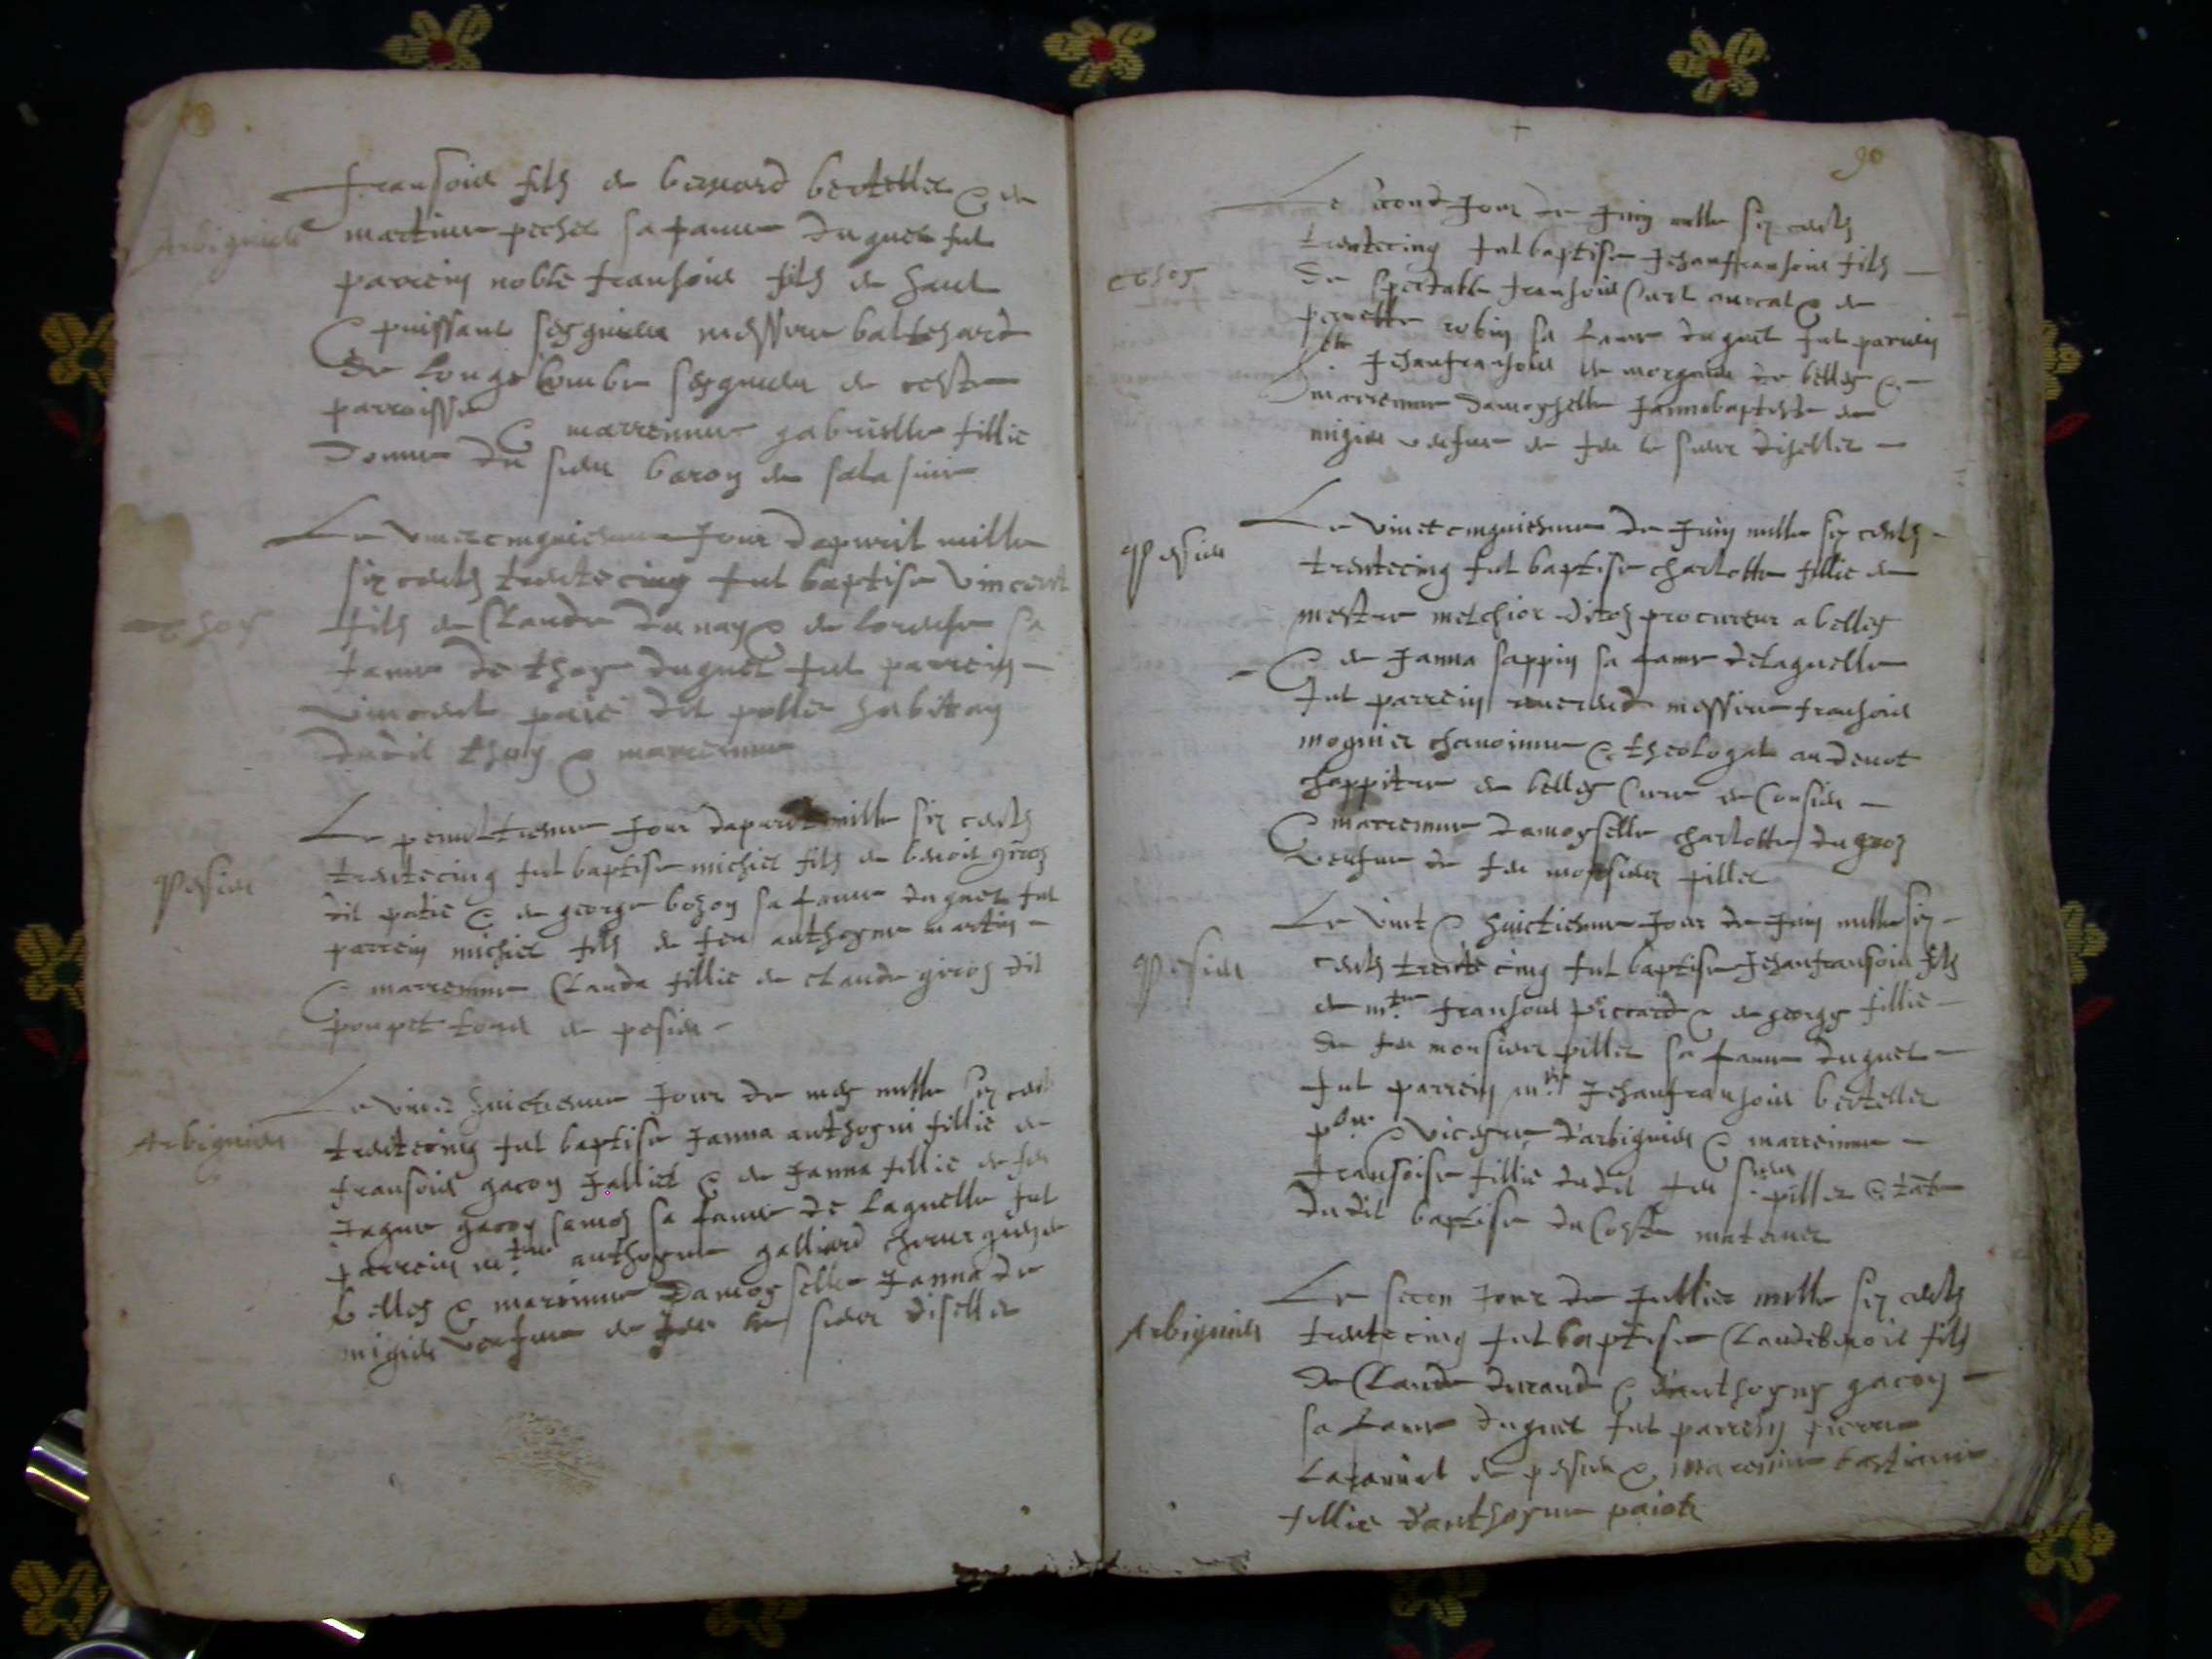 fransois filz de bernard berteller & de
Arbignieu
martine pecher sa fame duquel fut
parrein noble fransois filz de haut
& puissant segnieur messire baltesard
de longecombe segnieur de ceste
parroisse & marreinne gabrielle fillie
donne du sieur baron de
Le vintcinquiesme Jour dapvril mille
six centz trentecinq fut baptise vincent
thoy
filz de Claude du nay & de sa
fame de thoy duquel fut parrein
vincent paie dit habitan
dudit thoy & marreinne
Le penultiesme Jour mille six centz
pesieu
trentecinq fut baptise michiel filz de benoit
dit patie & de george bozon sa fame duquel fut
parrein michiel filz de feu anthoyne martin
& marreinne Clauda fillie de claude giroz dit
poupet tous de pesieu
Le vint huictiesme Jour de may mille six cent
Arbignieu
trentecinq fut baptise Janna anthoyni fillie de
fransois gacon Jalliet & de Janna fillie de feu
Jaque gacon sa fame de laquelle fut
parrein mtre anthoyne galliard chirurgien
belley & marreinne damoyselle Janna de
migieu veufue de feu le sieur diseller
90
Le second Jour de Juin mille six centz
trentecinq fut baptise Jehanfransois filz
thoy
de spectable fransois avocat & de
pernette robin sa fame duquel fut parrein
Jehanfransois de morgnieu de belley &
marreinne damoyselle Jannebaptiste de
migieu veufue de feu le sieur diseller
Le vintcinquiesme de Juin mille six centz
pesieu
trentecinq fut baptise charlotte fillie de
mestre melchior procureur a belley
& de Janna sappin sa fame delaquelle
fut parrein reverend messire fransois
mognier chanoinne & theologal au devot
chappitre de belley Cure de Consieu
& marreinne damoyselle charlotte
veufue de feu monsieur piller
Le vint & huictiesme Jour de Juin mille six
pesieu
centz trente cinq fut baptise Jehanfransois filz
de mtre fransois piccard & de george fillie
de feu monsieur piller sa fame duquel
fut parrein mre Jehanfransois berteller
pbre & vicayre darbignieu & marreinne
fransoise fillie dudit feu sieur piller & tante
dudit baptise du Coste maternel
Le secon Jour de Jullier mille six centz
Arbignieu
trentecinq fut baptise Claudebenoit filz
de Claude durand & danthoyny gacon
sa fame duquel fut parrein pierre
de pesieu & marreinne bastienne
fillie danthoyne